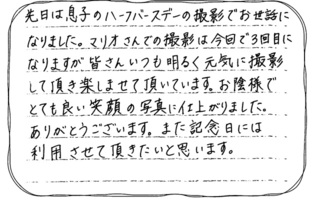 先日は息子のハーフバースデーの撮影でお世話に
なりました。マリオさんでの撮影は今回で3回目に
なりますが皆さんいつも明るく元気に撮影
して頂き楽しませて頂いています。お陰様で
とても良い笑顔の写真に仕上がりました。
ありがとうございます。また記念日には
利用させて頂きたいと思います。